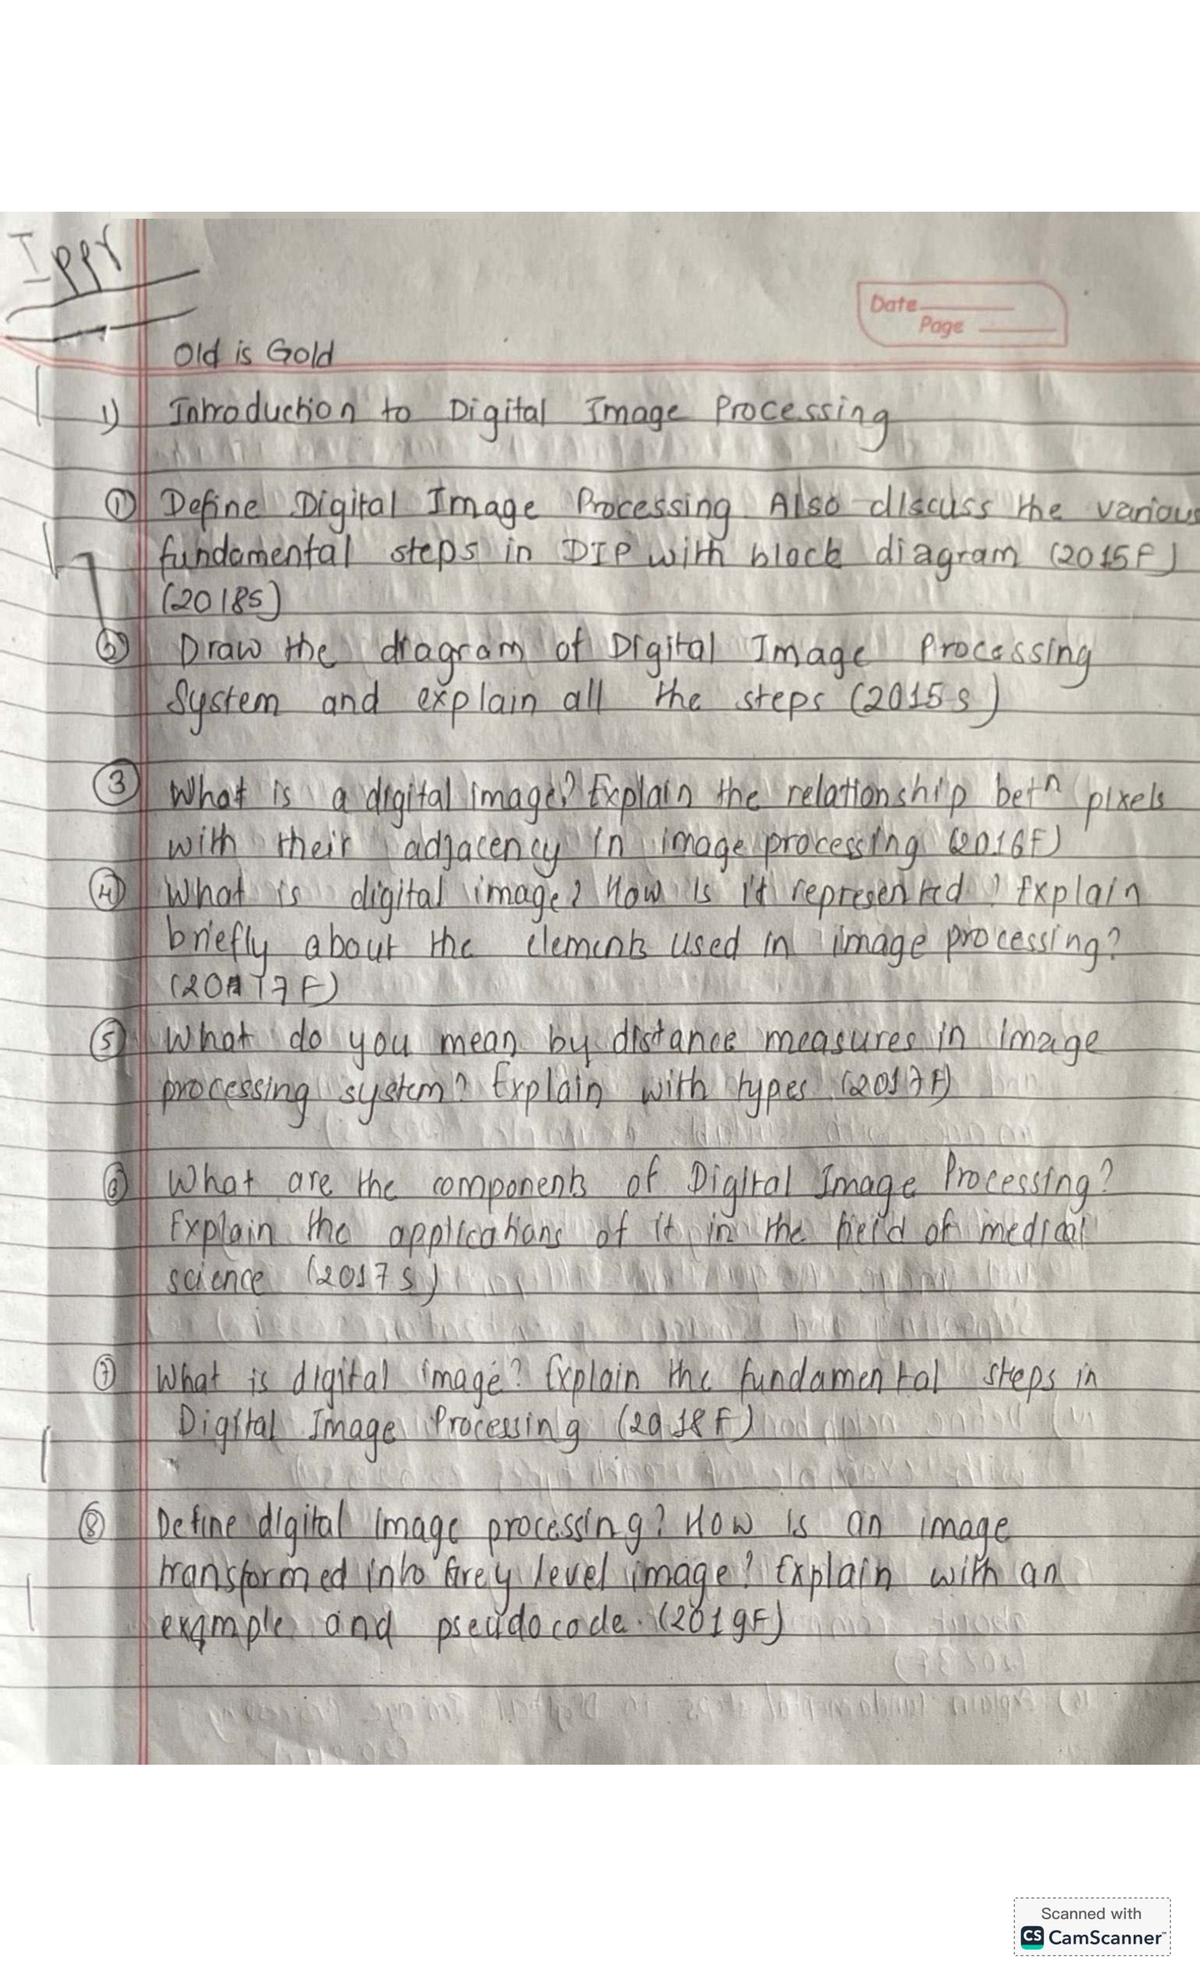 IPPR
Date
Page
Old is Gold
1) Introduction to Digital Image Processing
① Define Digital Image Processing. Also discuss the various
fundamental steps in DIP with block diagram (2015F)
(2018S)
② Draw the diagram of Digital Image Processing
System and explain all the steps (2015s)
③ What is a digital image? Explain the relationship betn pixels
with their adjacency in image processing (2016F)
④ What is digital image? How is it represented? Explain
briefly about the elements used in image processing?
(2017F)
⑤ What do you mean by distance measures in image
processing system? Explain with types (2017F)
⑥ What are the components of Digital Image Processing?
Explain the applications of it in the field of medical
science (2017s)
⑦ What is digital image? Explain the fundamental steps in
Digital Image Processing (2018F)
⑧ Define digital image processing? How is an image
transformed into Grey level image? Explain with an
example and pseudocode. (2019F)
Scanned with
CS CamScanner